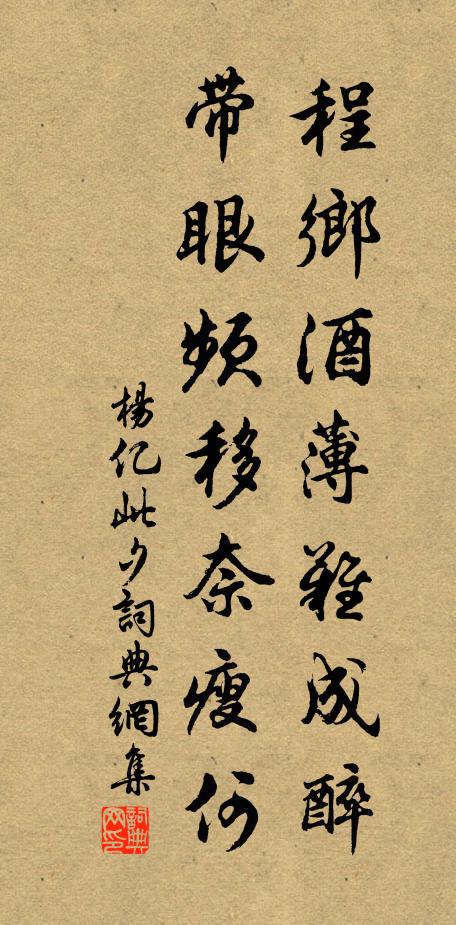 程鄉酒薄難成醉
帶眼頻移奈瘦何
楊億此夕詞典網集
詞典網印